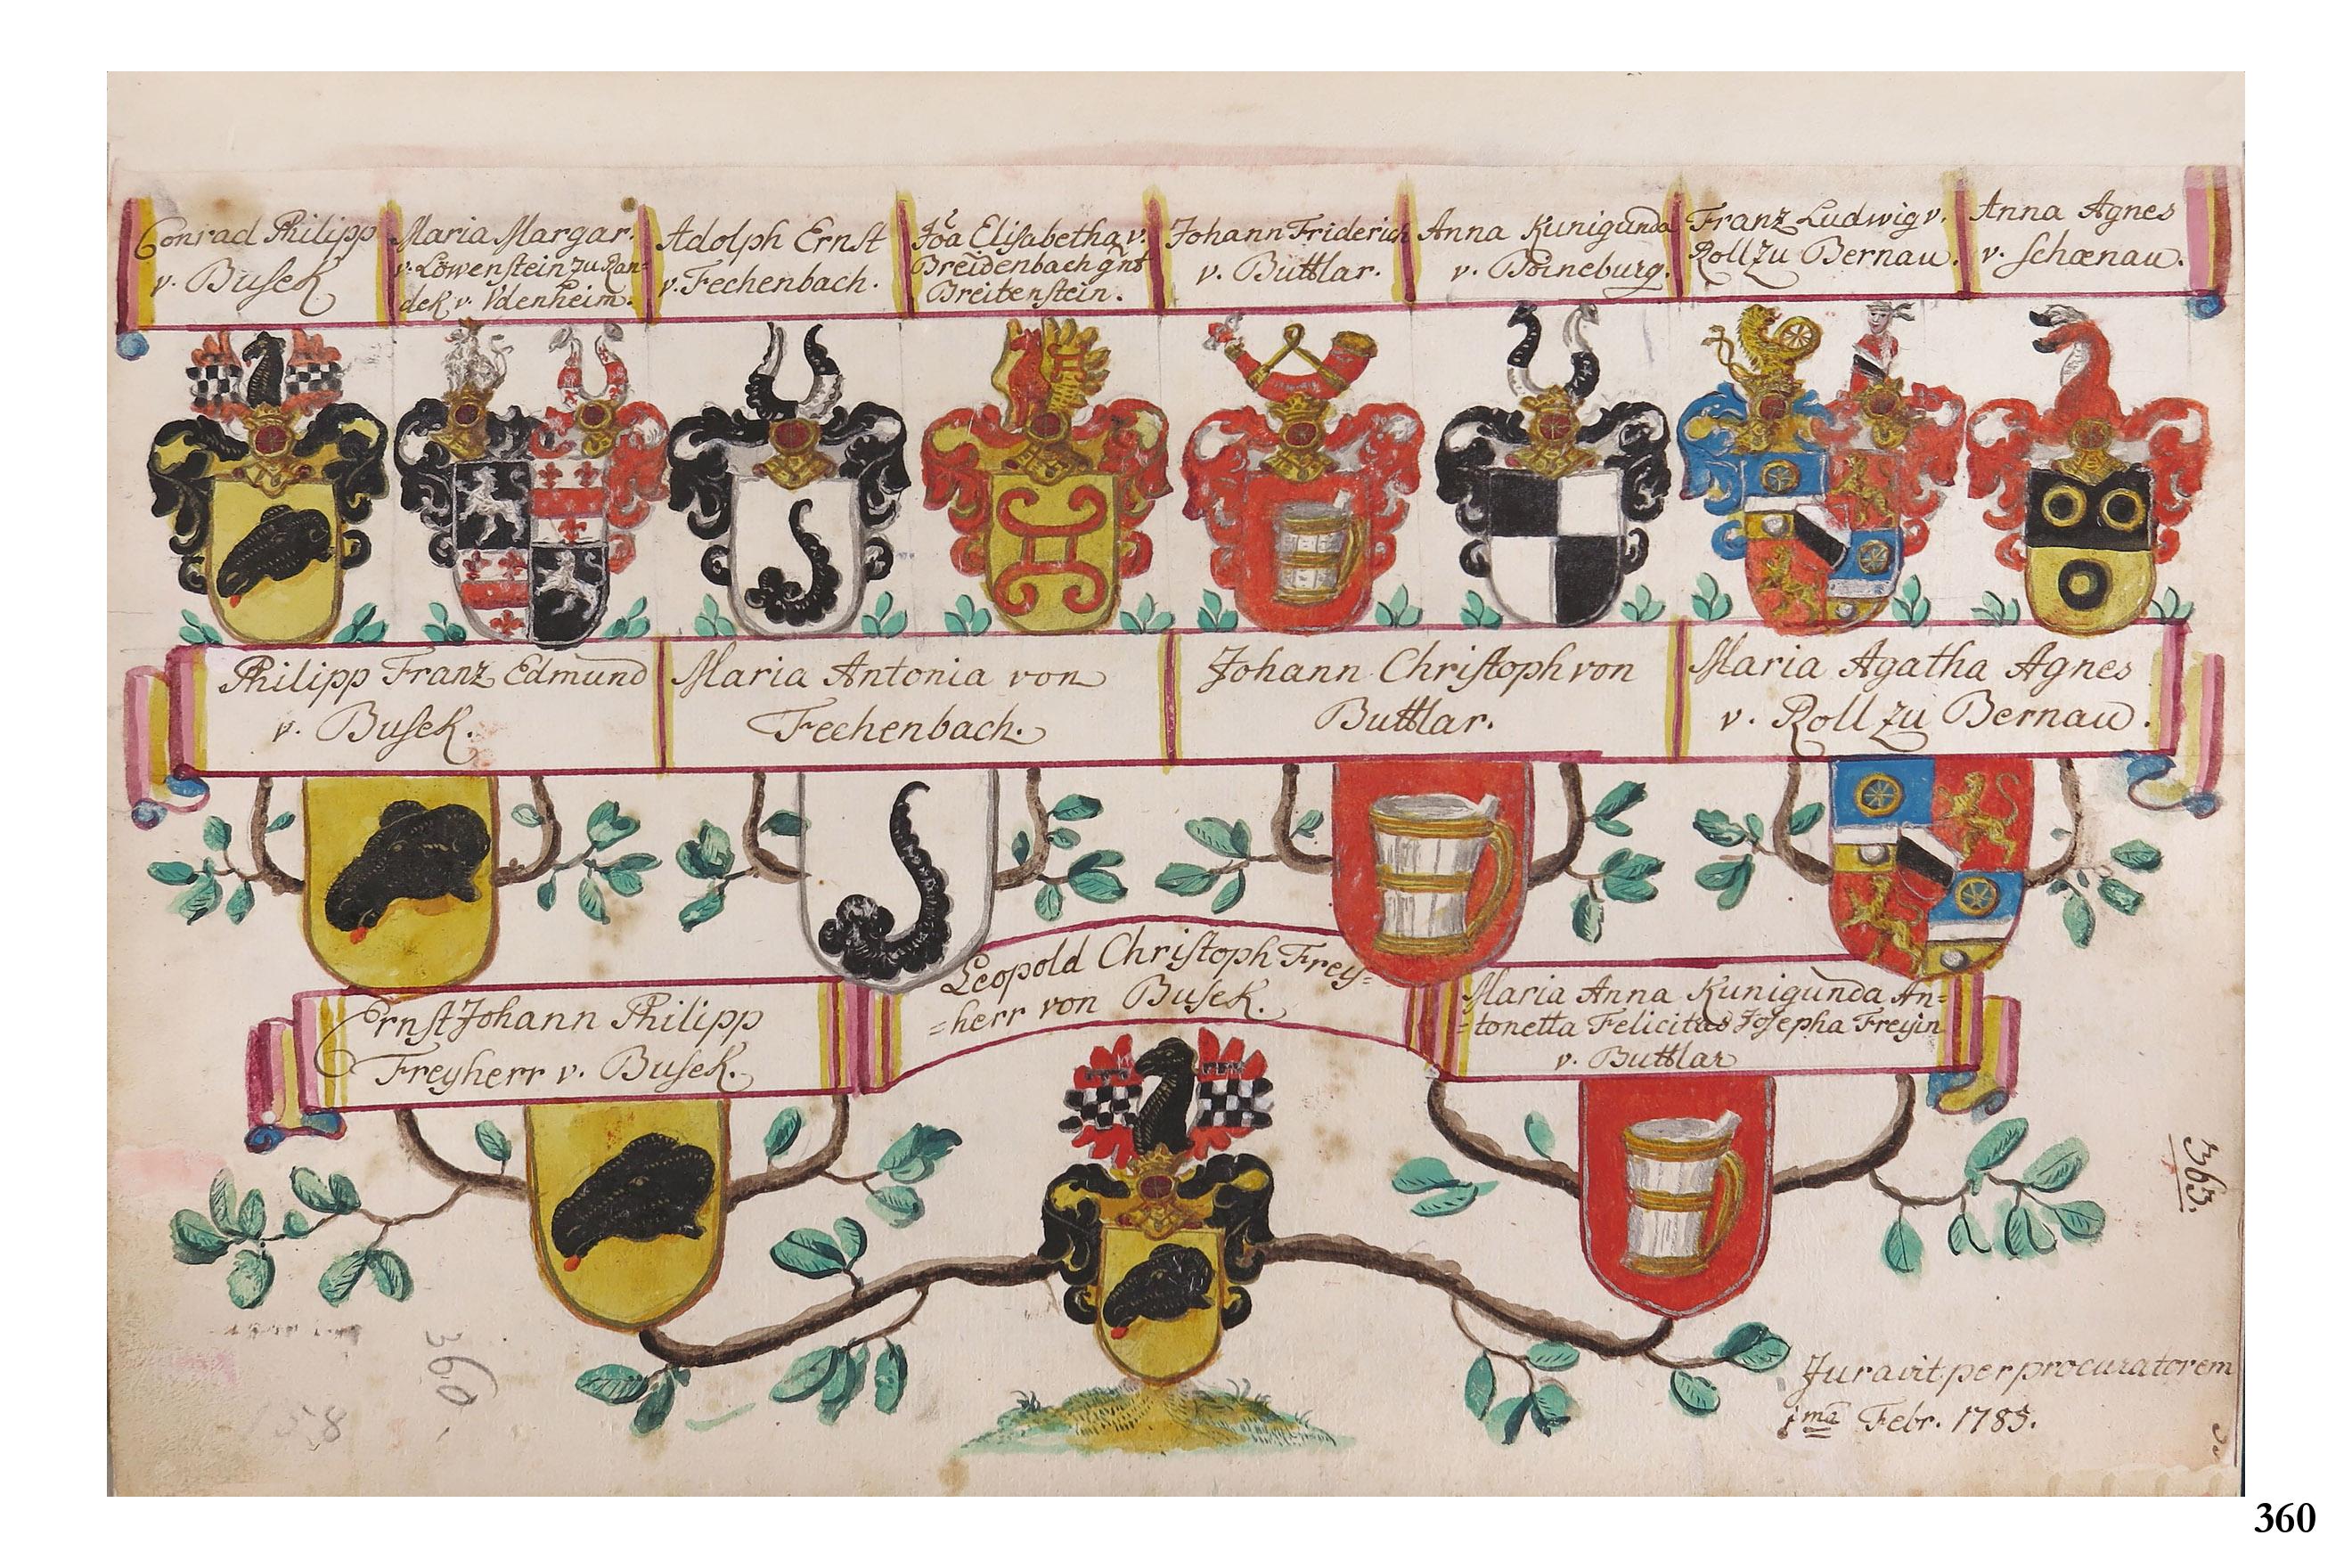 Conrad Philipp
v. Busek
Maria Margar.
v. Löwenstein zu Ran=
dek v. Vdenheim.
Adolph Ernst
v. Fechenbach.
Joa Elisabetha v.
Breidenbach gnt
Breitenstein.
Johann Friderich
v. Buttlar.
Anna Kunigunda
v. Boineburg.
Franz Ludwig v.
Roll zu Bernau.
Anna Agnes
v. Schœnau.
Philipp Franz Edmund
v. Busek.
Maria Antonia von
Fechenbach.
Johann Christoph von
Buttlar.
Maria Agatha Agnes
v. Roll zu Bernau.
Ernst Johann Philipp
Freyherr v. Busek.
Leopold Christoph Frey=
=herr von Busek.
Maria Anna Kunigunda An=
=tonetta Felicitas Josepha Freyin
v. Buttlar
363.
360
Juravit per procuratorem
1ma Febr. 1783.
360